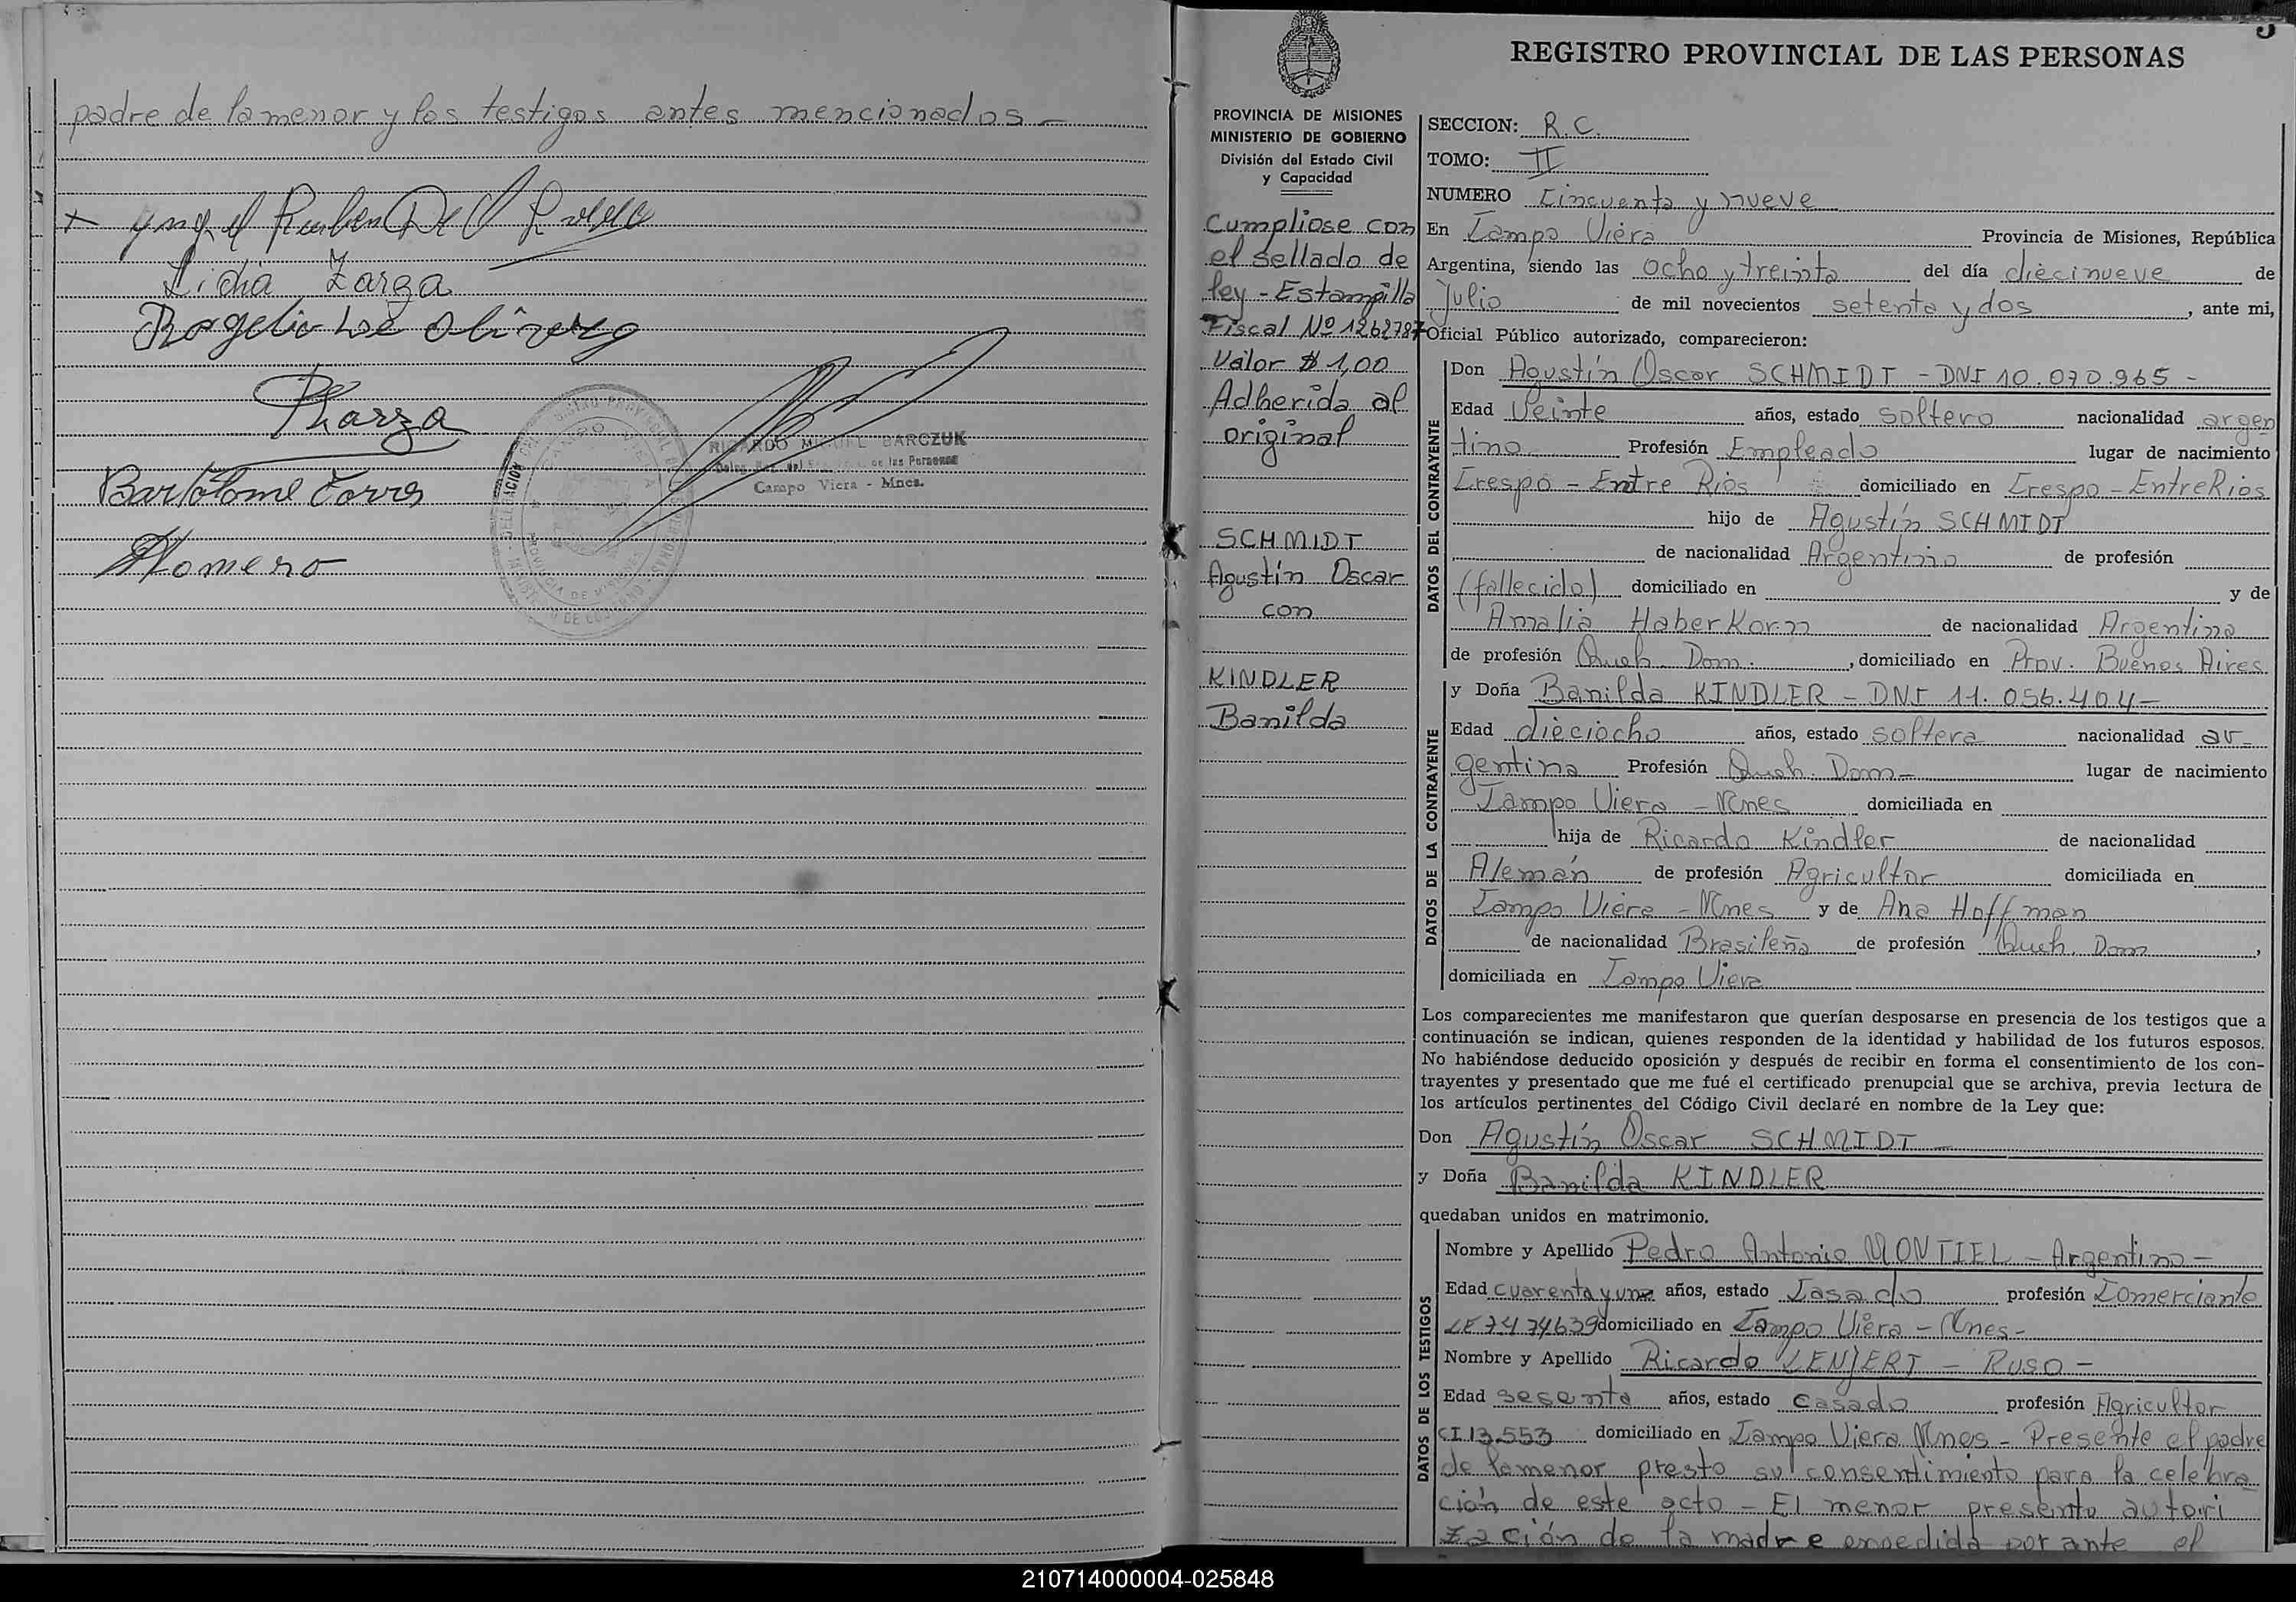 padre de la menor y los testigos antes mencionados -
Lidia Zarza
Rogelio De Olivera
Bartolome Torres
Romero
RICARDO MIGUEL BARCZUK
de las Personas
Campo Viera - Mnes.
PROVINCIA DE MISIONES
5
REGISTRO PROVINCIAL DE LAS PERSONAS
PROVINCIA DE MISIONES
MINISTERIO DE GOBIERNO
División del Estado Civil
y Capacidad
Cumpliose con
el sellado de
ley - Estampilla
Fiscal Nº 1262787
Valor $ 1,00
Adherida al
original
SCHMIDT
Agustín Oscar
con
KINDLER
Banilda
SECCION: R.C.
TOMO: II
NUMERO Cincuenta y nueve
En Campo Viera Provincia de Misiones, República
Argentina, siendo las ocho y treinta del día diecinueve de
Julio de mil novecientos setenta y dos, ante mi,
Oficial Público autorizado, comparecieron:
DATOS DEL CONTRAYENTE
Don Agustín Oscar SCHMIDT - DNI 10.070.965 -
Edad Veinte años, estado soltero nacionalidad argen
tino Profesión Empleado lugar de nacimiento
Crespo - Entre Rios domiciliado en Crespo - Entre Rios
hijo de Agustín SCHMIDT
de nacionalidad Argentino de profesión
(fallecido) domiciliado en y de
Amalia Haberkorn de nacionalidad Argentina
de profesión Queh. Dom., domiciliado en Prov. Buenos Aires
DATOS DE LA CONTRAYENTE
y Doña Banilda KINDLER - DNI 11.056.404 -
Edad dieciocho años, estado soltera nacionalidad ar-
gentina Profesión Queh. Dom- lugar de nacimiento
Campo Viera - Mnes domiciliada en
hija de Ricardo Kindler de nacionalidad
Alemán de profesión Agricultor domiciliada en
Campo Viera - Mnes y de Ana Hoffman
de nacionalidad Brasileña de profesión Queh. Dom,
domiciliada en Campo Viera
Los comparecientes me manifestaron que querían desposarse en presencia de los testigos que a
continuación se indican, quienes responden de la identidad y habilidad de los futuros esposos.
No habiéndose deducido oposición y después de recibir en forma el consentimiento de los con-
trayentes y presentado que me fué el certificado prenupcial que se archiva, previa lectura de
los artículos pertinentes del Código Civil declaré en nombre de la Ley que:
Don Agustín Oscar SCHMIDT -
y Doña Banilda KINDLER
quedaban unidos en matrimonio.
DATOS DE LOS TESTIGOS
Nombre y Apellido Pedro Antonio MONTIEL - Argentino -
Edad cuarenta y uno años, estado Casado profesión Comerciante
LE 7474639 domiciliado en Campo Viera - Mnes -
Nombre y Apellido Ricardo - Ruso -
Edad sesenta años, estado casado profesión Agricultor
CI 13.553 domiciliado en Campo Viera Mnes - Presente el padre
de la menor presto su consentimiento para la celebra
ción de este acto - El menor presento autori
zación de la madre expedida por ante el
210714000004-025848